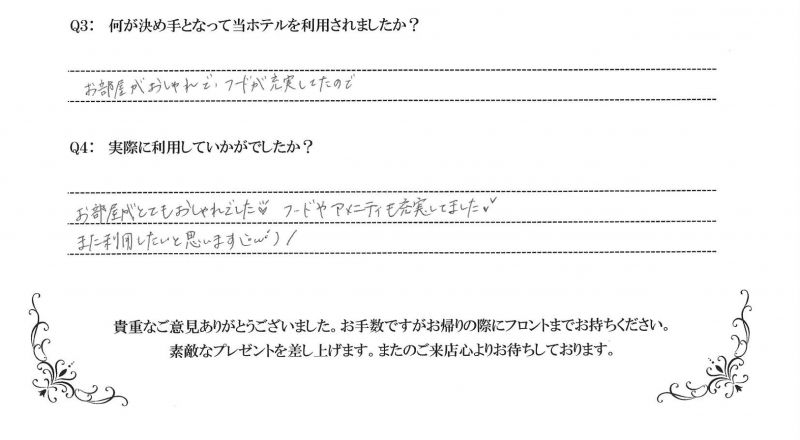 Q3： 何が決め手となって当ホテルを利用されましたか？
お部屋がおしゃれで、フードが充実してたので
Q4： 実際に利用していかがでしたか？
お部屋がとてもおしゃれでした♡ フードやアメニティも充実してました♪
また利用したいと思います(^ω^)/
貴重なご意見ありがとうございました。お手数ですがお帰りの際にフロントまでお持ちください。
素敵なプレゼントを差し上げます。またのご来店心よりお待ちしております。